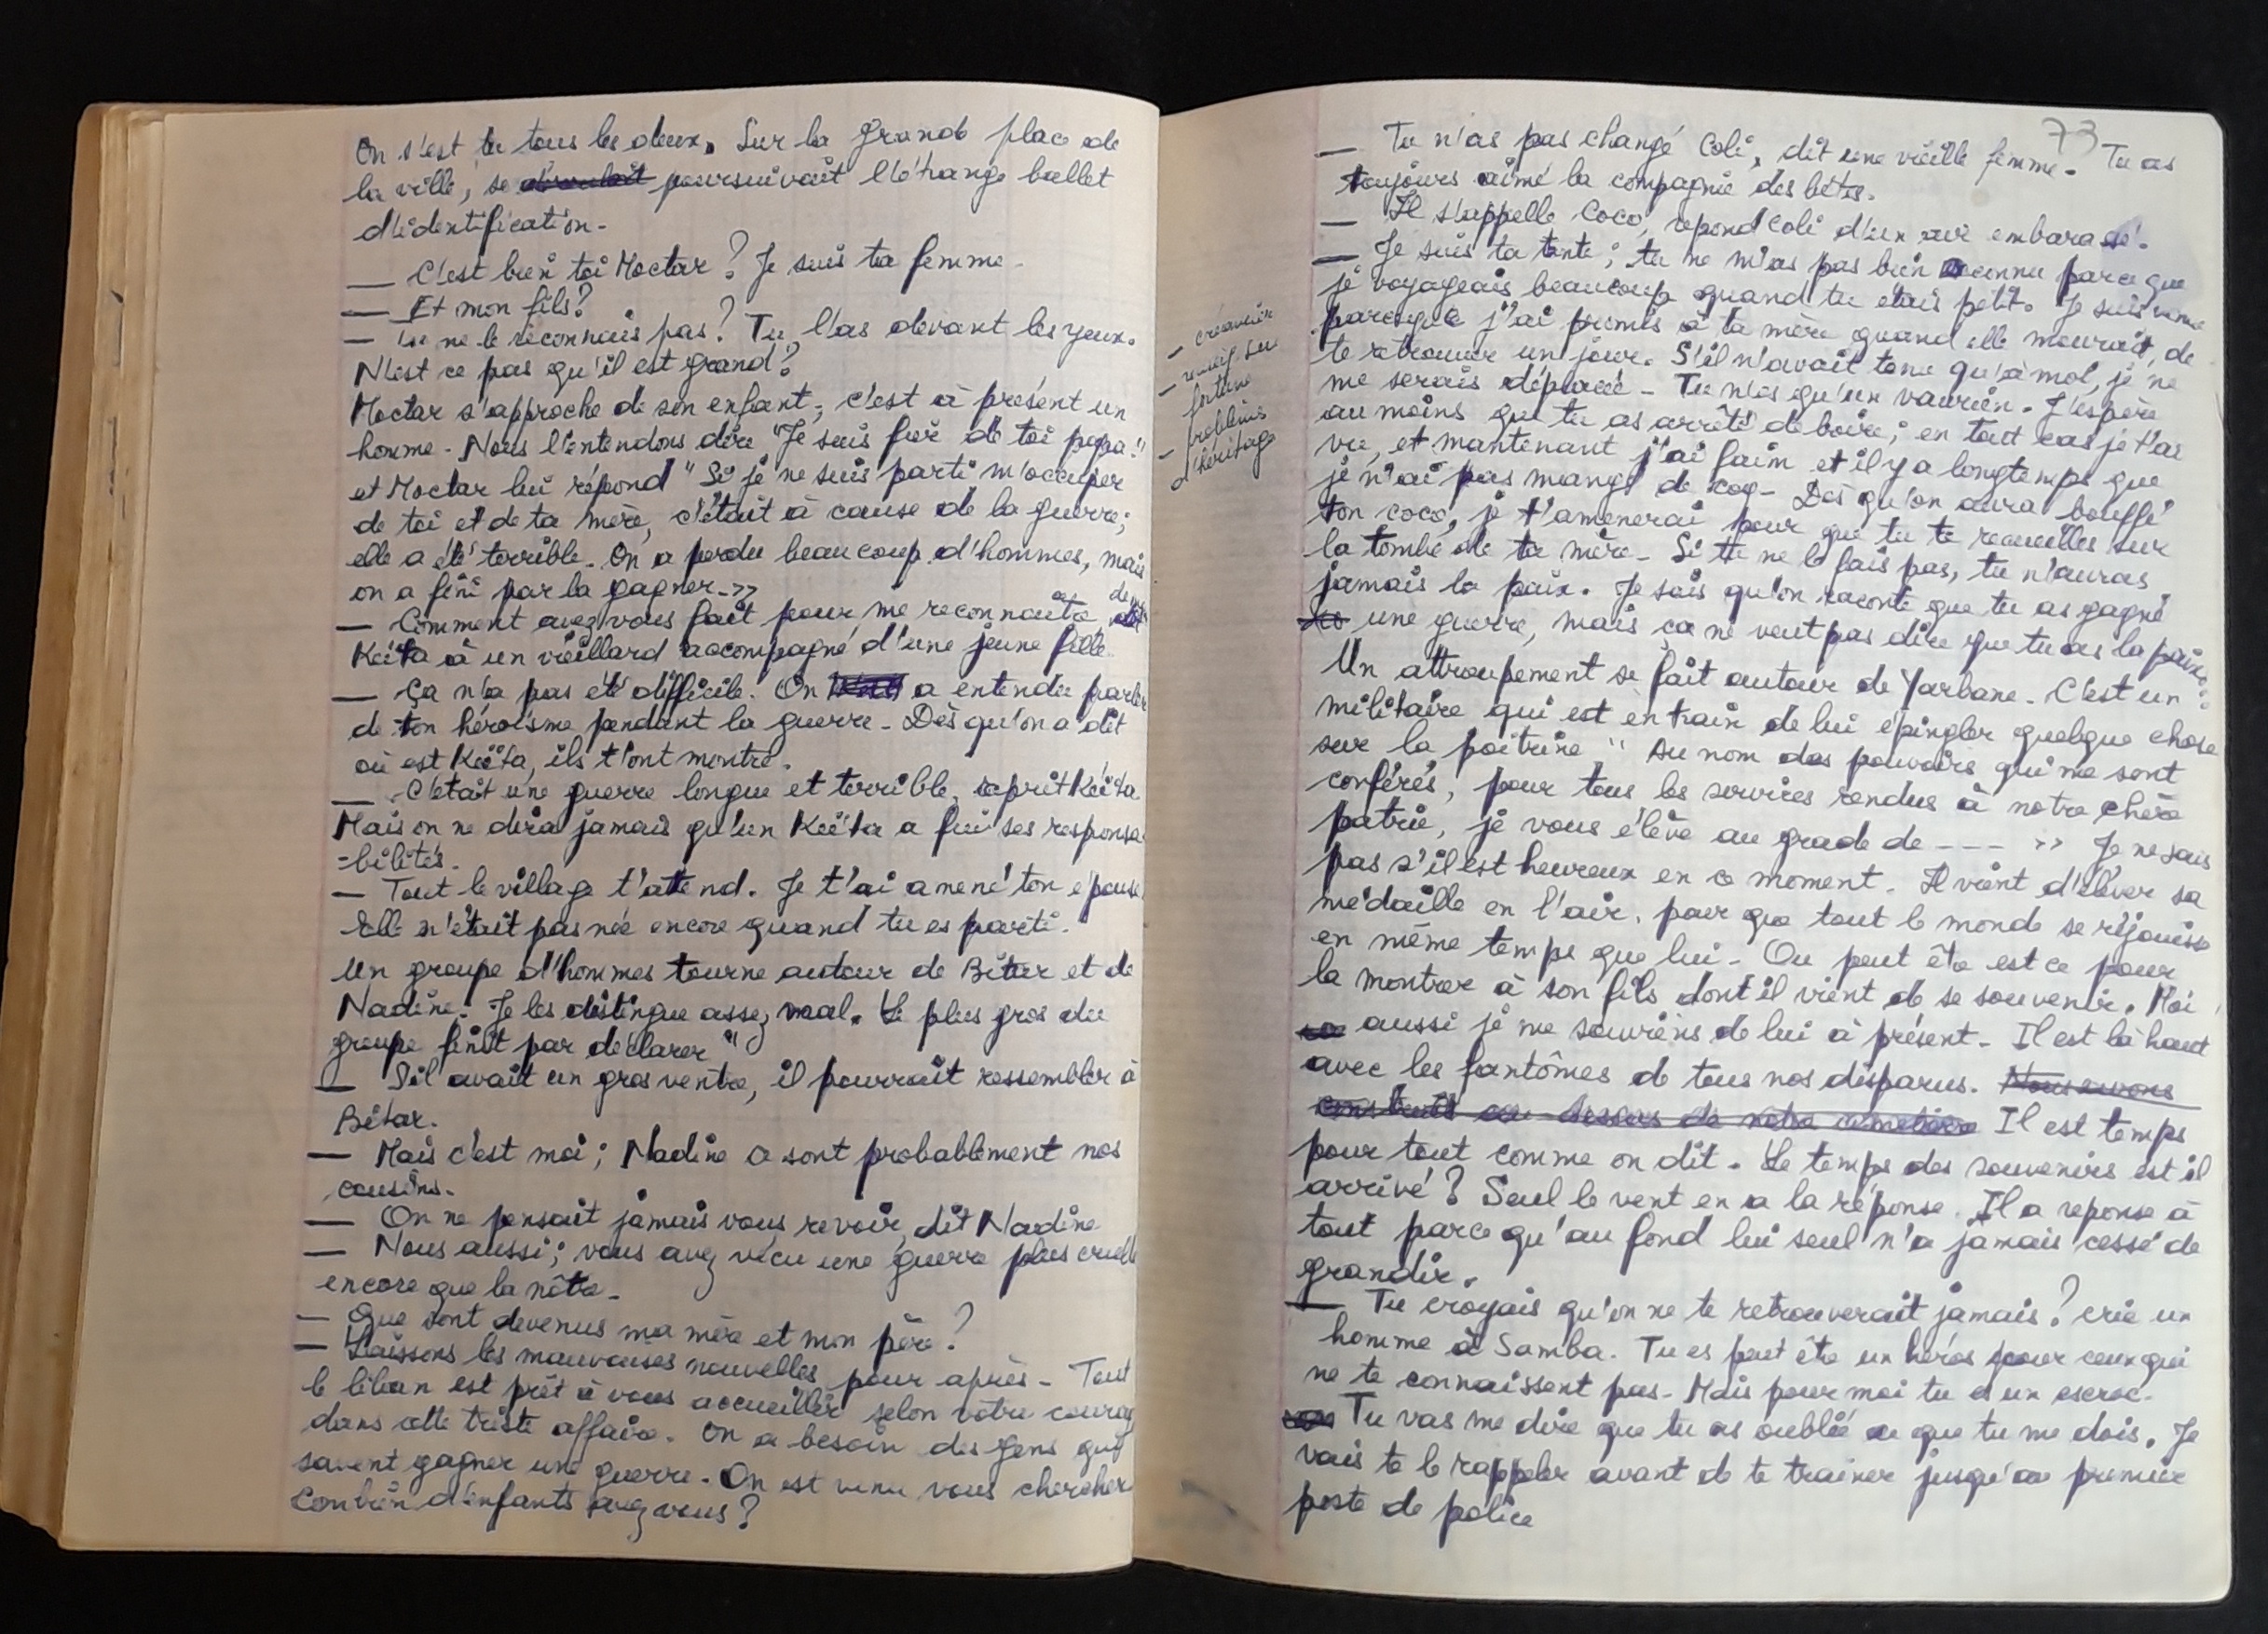 On s'est tu tous les deux. Sur la grande place de
la ville, se déroulait poursuivait l'étrange ballet
d'identification.
— C'est bien toi Moctar ? Je suis ta femme.
— Et mon fils ?
— Tu ne le reconnais pas ? Tu l'as devant les yeux.
N'est ce pas qu'il est grand ?
Moctar s'approche de son enfant ; c'est à présent un
homme. Nous l'entendons dire "Je suis fier de toi papa."
et Moctar lui répond "Si je ne suis parti m'occuper
de toi et de ta mère, c'était à cause de la guerre ;
elle a été terrible. On a perdu beaucoup d'hommes, mais
on a fini par la gagner. >>
— Comment avez vous fait pour me reconnaître
Keïta à un vieillard accompagné d'une jeune fille.
— Ça n'a pas été difficile. On a entendu parler
de ton héroïsme pendant la guerre. Dès qu'on a dit
où est Keïta, ils t'ont montré.
— C'était une guerre longue et terrible, reprit Keïta
Mais on ne dira jamais qu'un Keïta a fui ses responsa
-bilités.
— Tout le village t'attend. Je t'ai amené ton épouse.
Elle n'était pas née encore quand tu es parti.
Un groupe d'hommes tourne autour de Bitar et de
Nadine. Je les distingue assez mal. Le plus gros du
groupe finit par déclarer "
— S'il avait un gros ventre, il pourrait ressembler à
Bitar.
— Mais c'est moi ; Nadine ce sont probablement nos
cousins.
— On ne pensait jamais vous revoir, dit Nadine
— Nous aussi ; vous avez vécu une guerre plus cruelle
encore que la nôtre.
— Que sont devenus ma mère et mon père ?
— Laissons les mauvaises nouvelles pour après. Tout
le liban est prêt à vous accueillir selon votre courage
dans cette triste affaire. On a besoin des gens qui
savent gagner une guerre. On est venu vous chercher
Combien d'enfants avez vous ?
73
— Tu n'as pas changé Coli, dit une vieille femme. Tu as
toujours aimé la compagnie des bêtes.
— Il s'appelle Coco, répond Coli d'un air embarassé.
— Je suis ta tante ; tu ne m'as pas bien connu parce que
je voyageais beaucoup quand tu étais petit. Je suis venue
parceque j'ai promis à ta mère quand elle mourait, de
te retrouver un jour. S'il n'avait tenu qu'à moi, je ne
me serais déplacée. Tu n'es qu'un vaurien. J'espère
au moins que tu as arrêté de boire ; en tout cas je t'ai
vu, et mantenant j'ai faim et il y a longtemps que
je n'ai pas mangé de coq. Dès qu'on aura bouffé
ton coco, je t'amenerai pour que tu te recueilles sur
la tombe de ta mère. Si tu ne le fais pas, tu n'auras
jamais la paix. Je sais qu'on raconte que tu as gagné
une guerre, mais ça ne veut pas dire que tu as la paix.
Un attroupement se fait autour de Yarbane. C'est un
militaire qui est en train de lui épingler quelque chose
sur la poitrine " Au nom des pouvoirs qui me sont
conférés, pour tous les services rendus à notre chère
patrie, je vous élève au grade de - - - >> Je ne sais
pas s'il est heureux en ce moment. Il vient d'élever sa
médaille en l'air, pour que tout le monde se réjouisse
en même temps que lui. Ou peut être est ce pour
la montrer à son fils dont il vient de se souvenir. Moi
aussi je me souviens de lui à présent. Il est là haut
avec les fantômes de tous nos disparus. Nous avons
construit au dessus de notre cimetière Il est temps
pour tout comme on dit. Le temps des souvenirs est il
arrivé ? Seul le vent en a la réponse. Il a reponse à
tout parce qu'au fond lui seul n'a jamais cessé de
grandir.
— Tu croyais qu'on ne te retrouverait jamais ? crie un
homme à Samba. Tu es peut être un héros pour ceux qui
ne te connaissent pas. Mais pour moi tu es un escroc.
Tu vas me dire que tu as oublié ce que tu me dois. Je
vais te le rappeler avant de te trainer jusqu'au premier
poste de police
— créancier
fortune
— problème
d'héritage